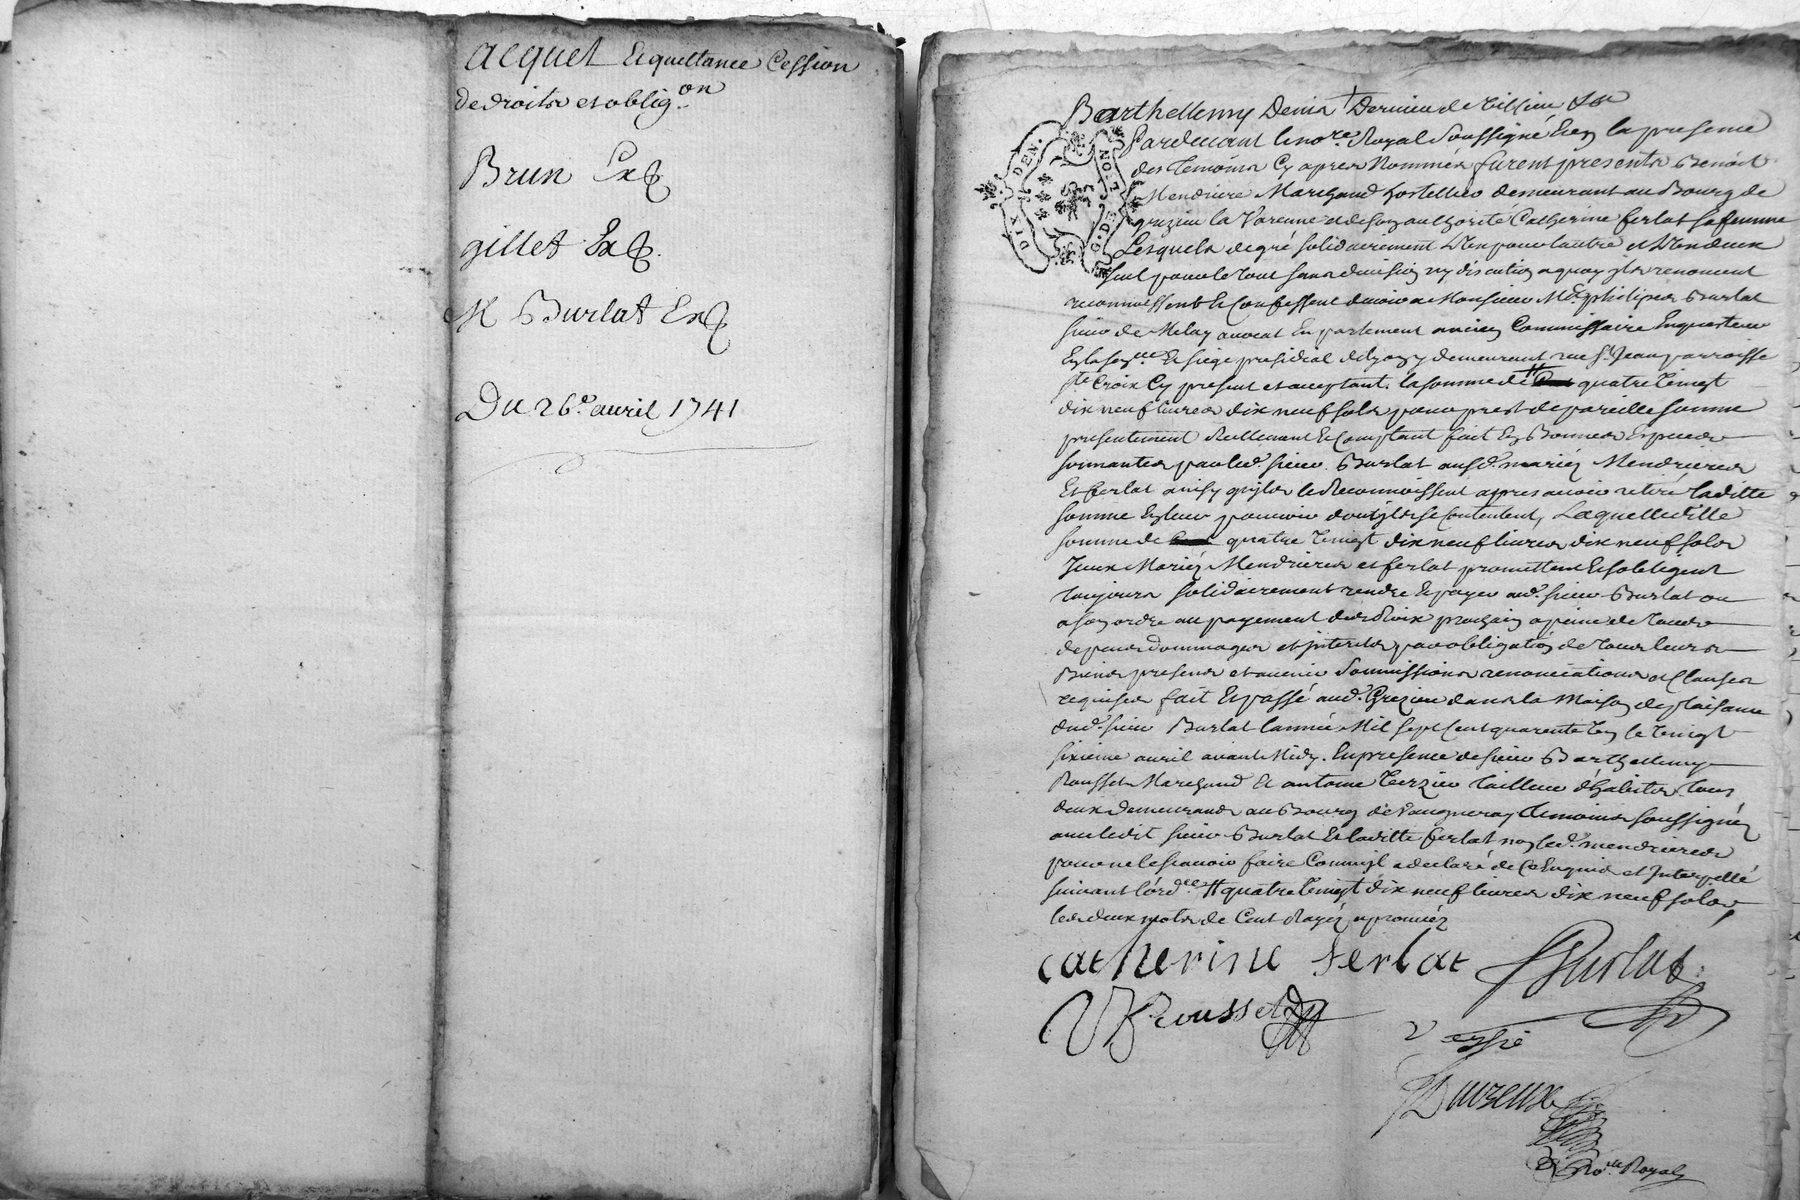 acquet Et quittance Cession
de droits et oblig.on
Brun Ex
gillet Ex
M Burlat Ex
Du 26.e avril 1741
Barthellemy Denis Dernier de
DIX. DEN.
G. DE LYON
Pardevant le no.re Royal Soussigné Et en la presence
des Temoins Cy apres Nommés furent presents Benoist
Mendriere Marchand hostellier demeurant au Bourg de
grezieu la Varenne et de son authorité Catherine ferlat sa femme
Lesquels de gré solidairement L'un pour l'autre et L'un d'eux
seul pour le tout sans division ny discution a quoy ils renoncent
reconnoissent Et Confessent devoir a Monsieur Me. philipes Burlat
sieur de Melay avocat En parlement ancien Commissaire Enquesteur
En la sen.ee Et siege presidial de Lyon y demeurant rue St. Jean parroisse
Ste Croix Cy present et acceptant. la somme de quatre vingt
dix neuf livres dix neuf sols pour prest de pareille somme
presentement Reellement Et Comptant fait En Bonnes Especes
sonnantes par led. sieur Burlat ausd. mariés Mendrieres
Et ferlat ainsy qu'ils le Reconnoissent apres avoir retiré laditte
somme En leur pouvoir dont ils se Contentent, Laquelle ditte
somme de quatre vingt dix neuf livres dix neuf sols
Iceux Mariés Mendrieres et ferlat promettent Et s'obligent
toujours solidairement rendre Et payer aud. sieur Burlat ou
a son ordre au payement des Rois prochain a peine de tous
depens dommages et interets par obligation de tous leurs
Biens presens et avenir Soumissions renonciations et Clauses
requises fait Et passé aud. Grezieu dans la Maison de plaisance
dud. sieur Burlat l'année Mil sept Cent quarente Un le vingt
sixieme avril avant Midy. En presence de sieur Barthellemy
Rousset Marchand Et antoine tailleur d'habits tous
deux demeurants au Bourg de Vaugneray temoins soussignés
avec ledit sieur Burlat Et laditte ferlat non led. mendrieres
pour ne le sçavoir faire Comm'il a declaré de Ce Enquis et Interpellé
suivant l'ord.ce # quatre vingt dix neuf livres dix neuf sols,
les deux mots de Cent Rayés approuvés
Catherine ferlat Burlat
B Rousset
Dureux
No.re Royal